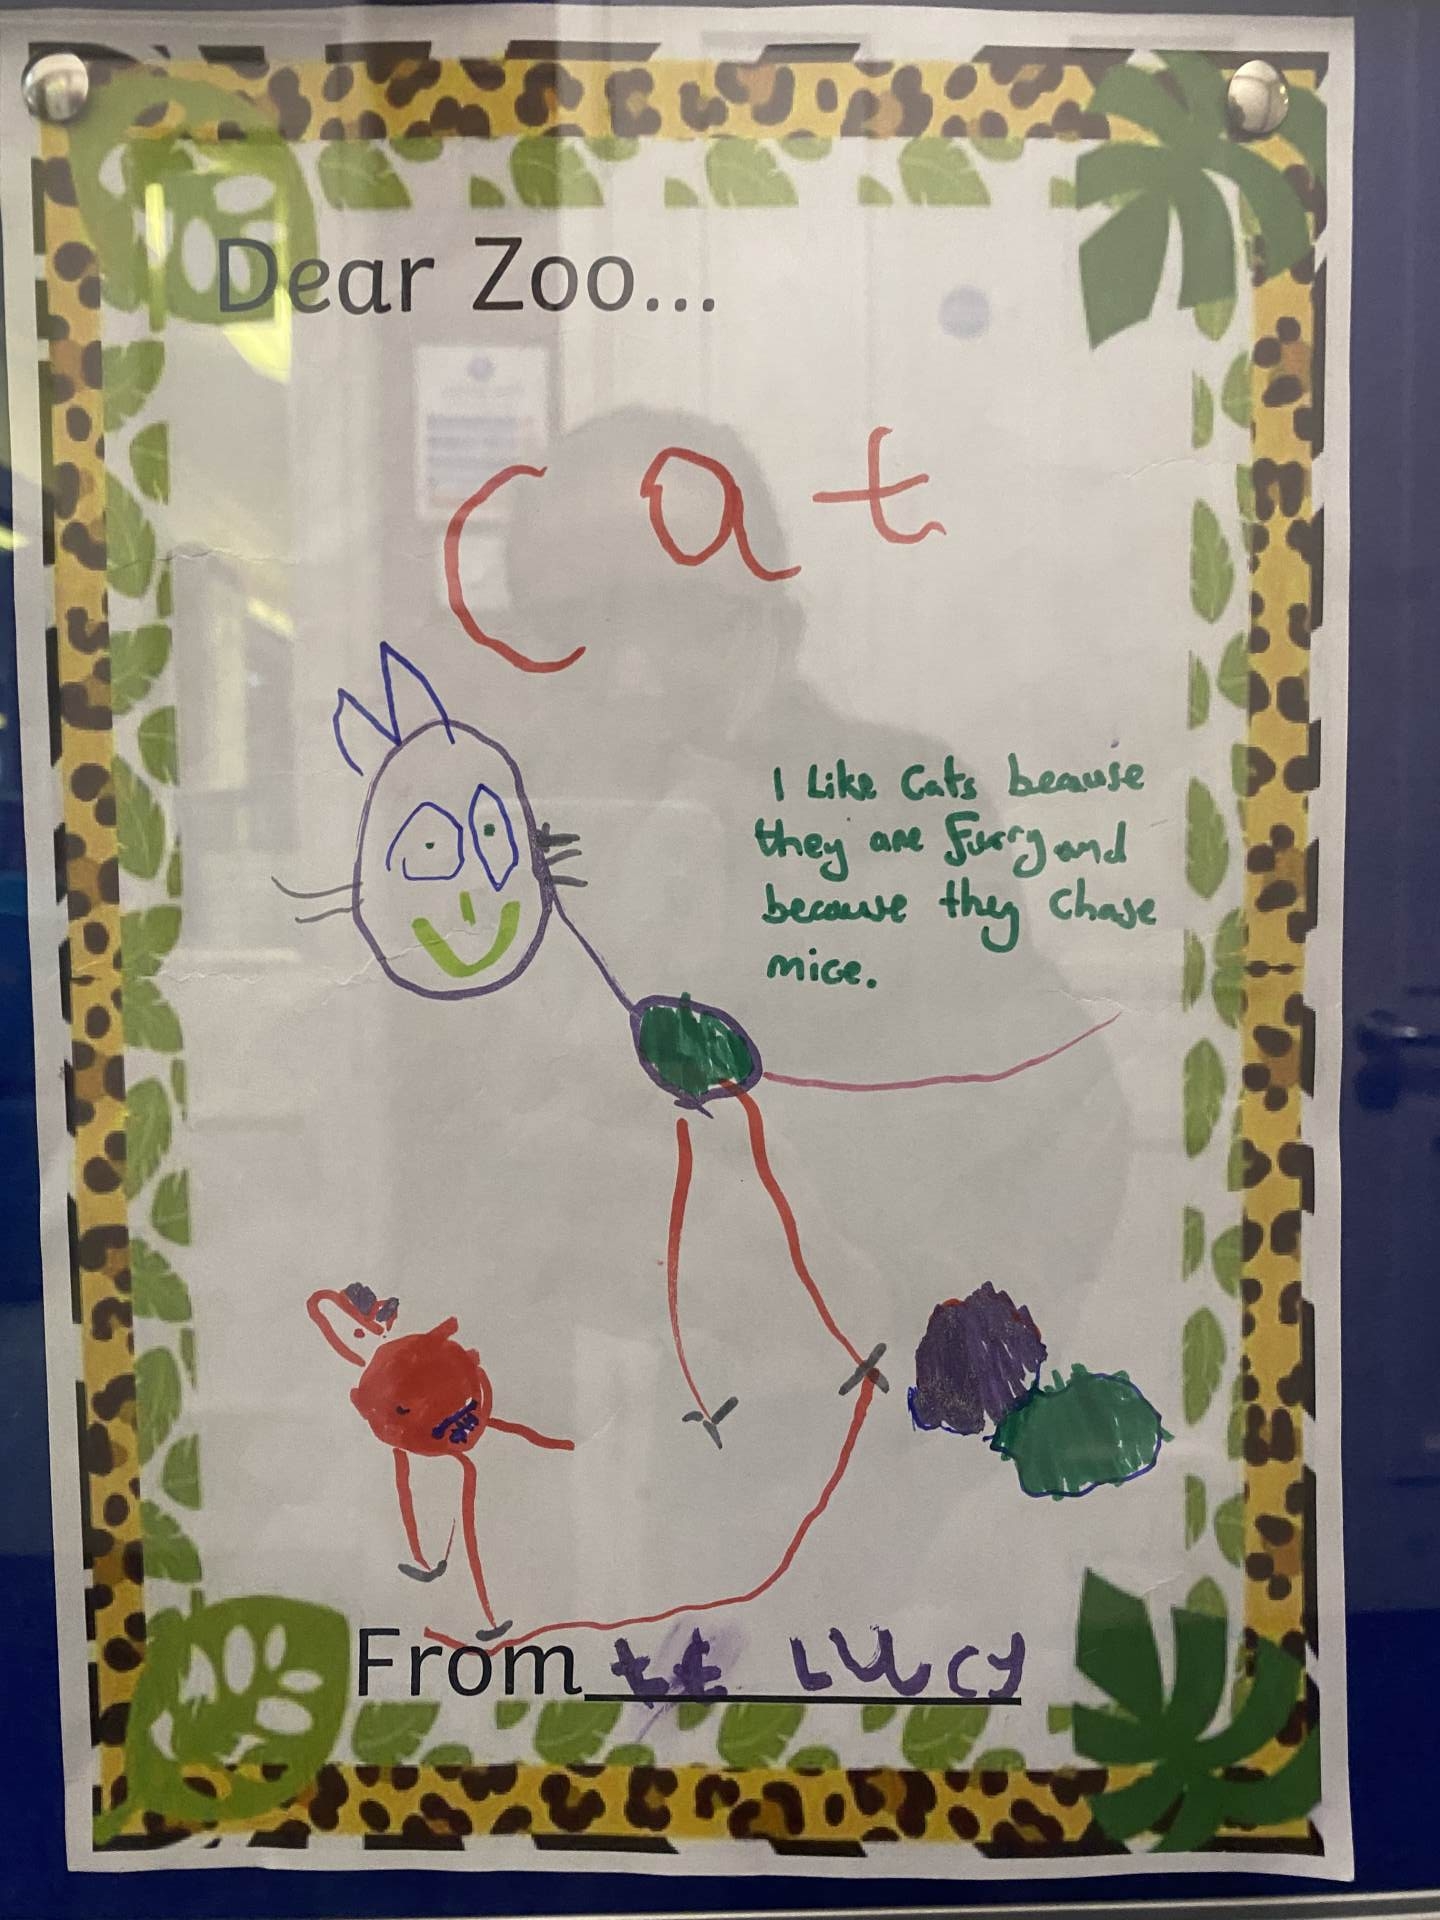 Dear Zoo...
Cat
I Like Cats because
they are furry and
because they chase
mice.
From Lucy